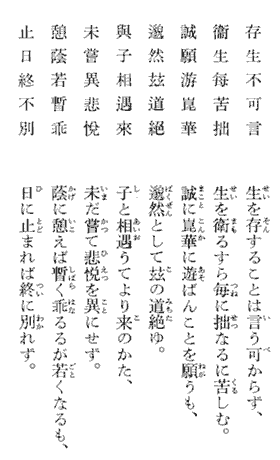 存生不可言
衞生毎苦拙
誠願游崑華
邈然玆道絶
與子相遇來
未嘗異悲悦
憩蔭若暫乖
止日終不別
生を存することは言う可からず。
生を衞るすら毎に拙なるに苦しむ。
誠に崑華に遊ばんことを願うも、
邈然として玆の道絶ゆ。
子と相遇うてより来のかた、
未だ嘗て悲悦を異にせず。
蔭に憩えば暫く乖るるが若くなるも、
日に止まれば終に別れず。